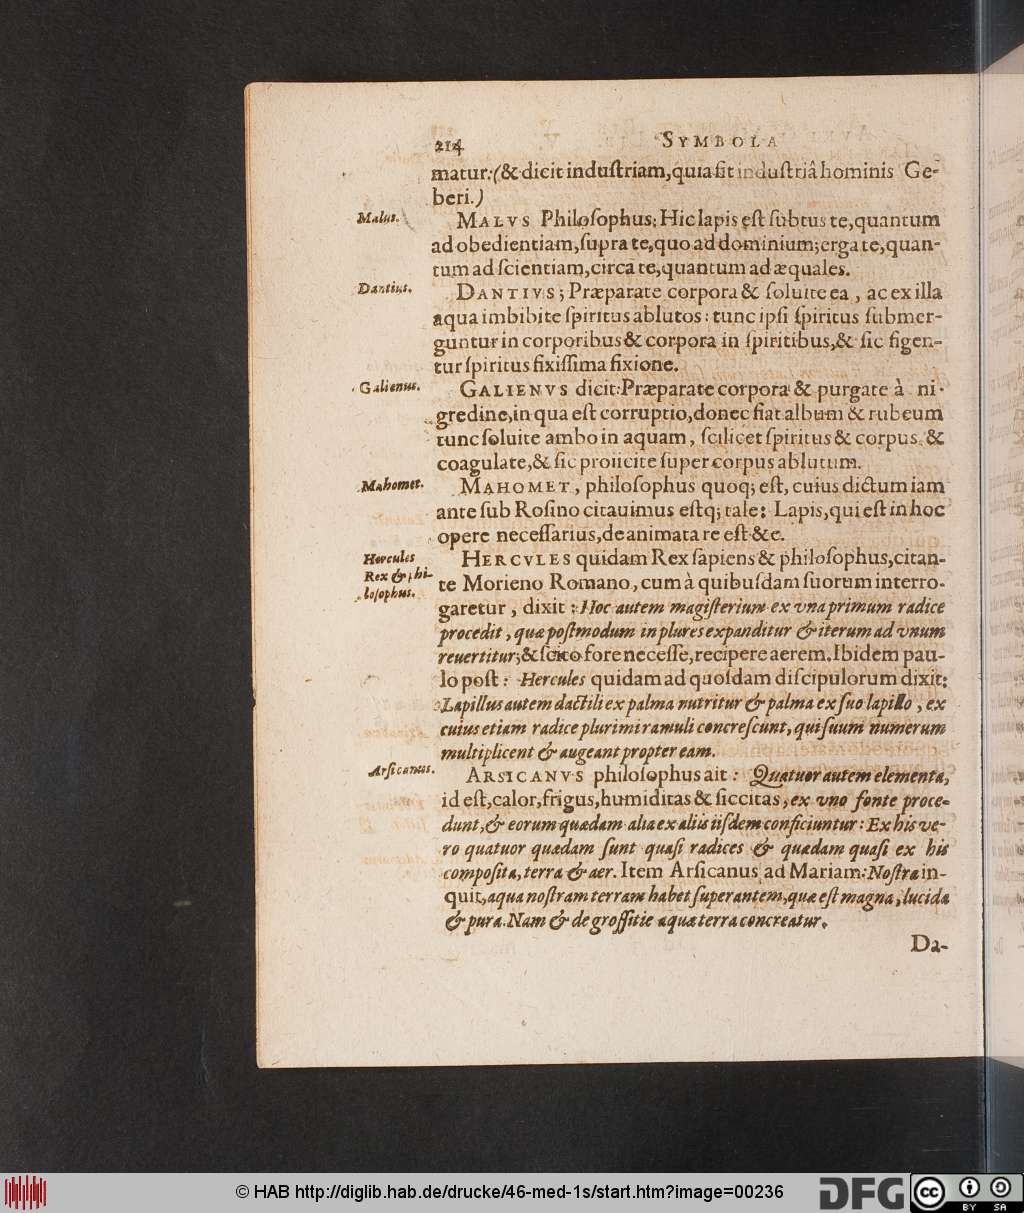 214 SYMBOLA
matur:(& dicit industriam, quia fit industriâ hominis Ge-
beri.)
Malus.
MALVS Philosophus: Hic lapis est subtus te, quantum
ad obedientiam, supra te, quo ad dominium; erga te, quan-
tum ad scientiam, circa te, quantum ad æquales.
Dantius.
DANTIVS; Præparate corpora & soluite ea, ac ex illa
aqua imbibite spiritus ablutos: tunc ipsi spiritus submer-
guntur in corporibus & corpora in spiritibus, & sic figen-
tur spiritus fixissima fixione.
Galienus.
GALIENVS dicit: Præparate corpora & purgate à ni-
gredine, in qua est corruptio, donec fiat album & rubeum
tunc soluite ambo in aquam, scilicet spiritus & corpus, &
coagulate, & sic proiicite super corpus ablutum.
Mahomet.
MAHOMET, philosophus quoq; est, cuius dictum iam
ante sub Rosino citauimus estq; tale: Lapis, qui est in hoc
opere necessarius, de animata re est &c.
Hercules
Rex & phi-
losophus.
HERCVLES quidam Rex sapiens & philosophus, citan-
te Morieno Romano, cum à quibusdam suorum interro-
garetur, dixit: Hoc autem magisterium ex vna primum radice
procedit, quæ postmodum in plures expanditur & iterum ad vnum
reuertitur; & scito fore necesse, recipere aerem. Ibidem pau-
lo post: Hercules quidam ad quosdam discipulorum dixit:
Lapillus autem dactili ex palma nutritur & palma ex suo lapillo, ex
cuius etiam radice plurimi ramuli concrescunt, qui suum numerum
multiplicent & augeant propter eam.
Arsicanus.
ARSICANVS philosophus ait: Quatuor autem elementa,
id est, calor, frigus, humiditas & siccitas, ex vno fonte proce-
dunt, & eorum quædam alia ex aliis iisdem conficiuntur: Ex his ve-
ro quatuor quædam sunt quasi radices & quædam quasi ex his
composita, terra & aer. Item Arsicanus ad Mariam: Nostra in-
quit, aqua nostram terram habet superantem, quæ est magna, lucida
& pura. Nam & de grossitie aquæ terra concreatur.
Da-
© HAB http://diglib.hab.de/drucke/46-med-1s/start.htm?image=00236
DFG
cc BY SA